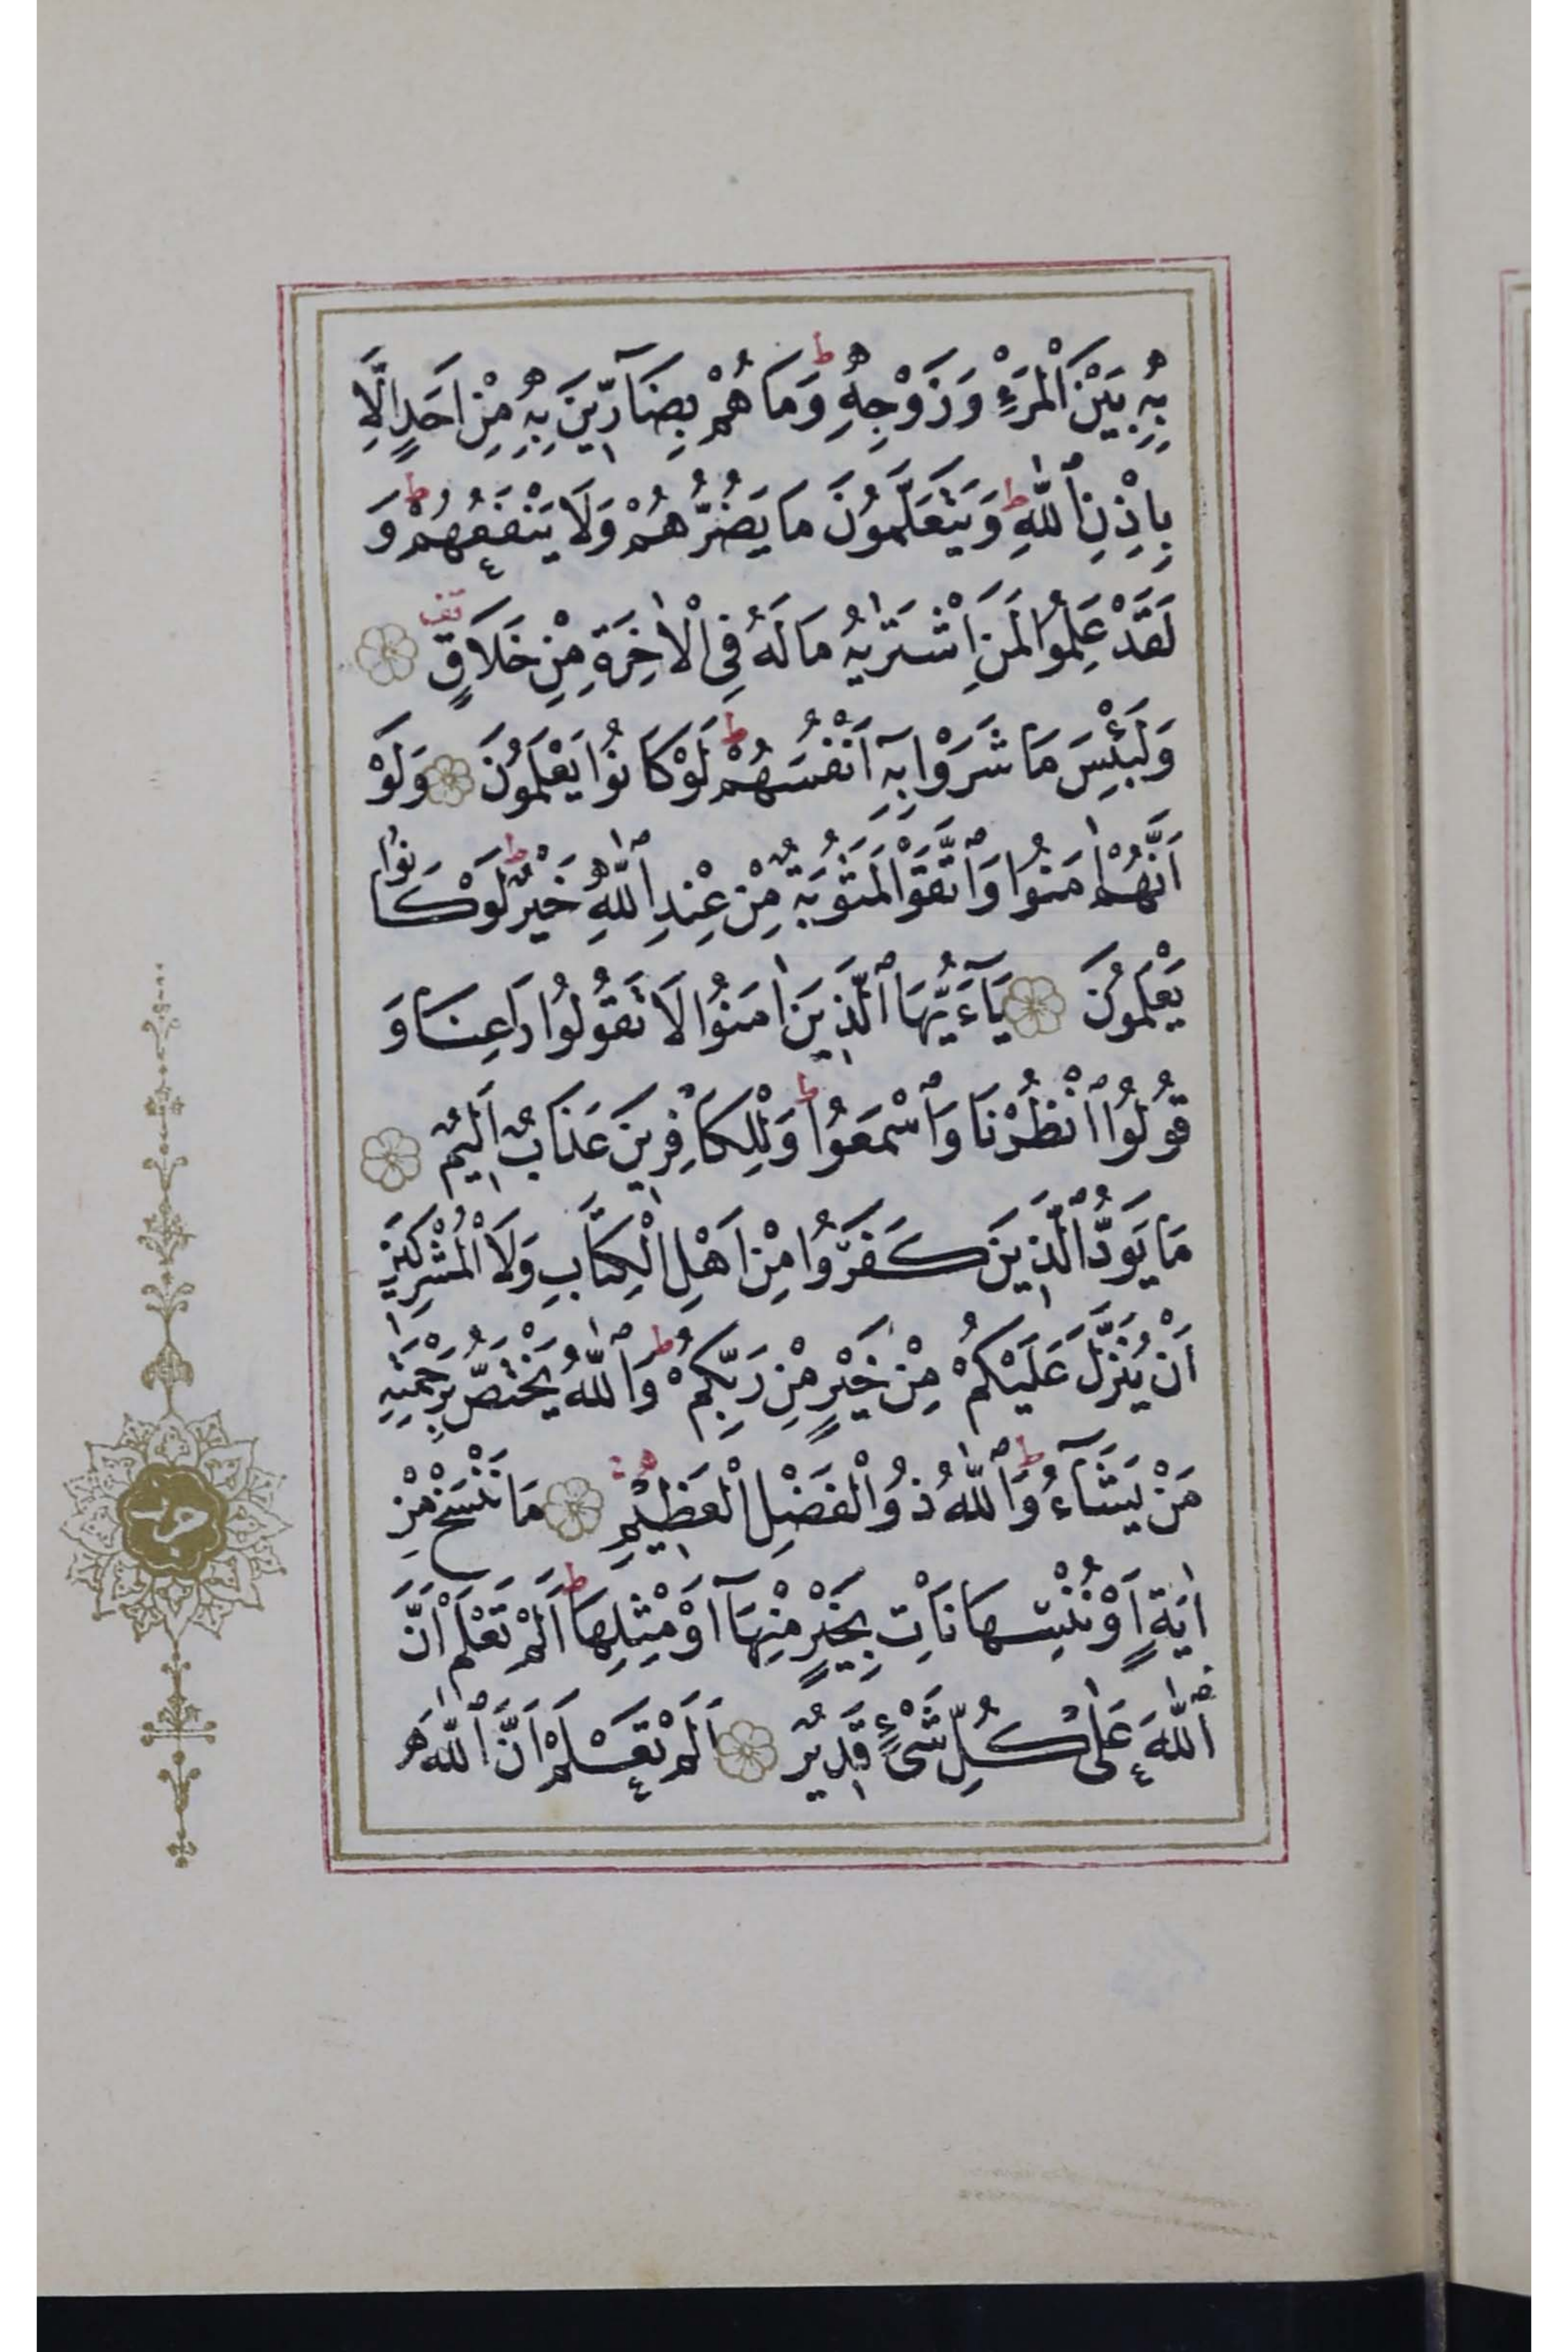 بِهِ بَيْنَ الْمَرْءِ وَزَوْجِهِ ط وَمَا هُمْ بِضَآرِّينَ بِهِ مِنْ اَحَدٍ اِلَّا
بِاِذْنِ ٱللّٰهِ ط وَيَتَعَلَّمُونَ مَا يَضُرُّهُمْ وَلَا يَنْفَعُهُمْ ط وَ
لَقَدْ عَلِمُوا لَمَنِ اشْتَرٰيهُ مَا لَهُ فِى الْاٰخِرَةِ مِنْ خَلَاقٍ قف
وَلَبِئْسَ مَا شَرَوْا بِهِٓ اَنْفُسَهُمْ ط لَوْ كَانُوا يَعْلَمُونَ وَلَوْ
اَنَّهُمْ اٰمَنُوا وَٱتَّقَوْا لَمَثُوبَةٌ مِنْ عِنْدِ ٱللّٰهِ خَيْرٌ ط لَوْ كَانُوا
يَعْلَمُونَ يَآءَيُّهَا ٱلَّذِينَ اٰمَنُوا لَا تَقُولُوا رَاعِنَا وَ
قُولُوا ٱنْظُرْنَا وَٱسْمَعُوا ط وَلِلْكَافِرِينَ عَذَابٌ اَلِيمٌ
مَا يَوَدُّ ٱلَّذِينَ كَفَرُوا مِنْ اَهْلِ الْكِتَابِ وَلَا الْمُشْرِكِينَ
اَنْ يُنَزَّلَ عَلَيْكُمْ مِنْ خَيْرٍ مِنْ رَبِّكُمْ ط وَٱللّٰهُ يَخْتَصُّ بِرَحْمَتِهِ
مَنْ يَشَآءُ ط وَٱللّٰهُ ذُو الْفَضْلِ الْعَظِيمِ مَا نَنْسَخْ مِنْ
اٰيَةٍ اَوْ نُنْسِهَا نَاْتِ بِخَيْرٍ مِنْهَآ اَوْ مِثْلِهَا ط اَلَمْ تَعْلَمْ اَنَّ
ٱللّٰهَ عَلٰى كُلِّ شَىْءٍ قَدِيرٌ اَلَمْ تَعْلَمْ اَنَّ ٱللّٰهَ